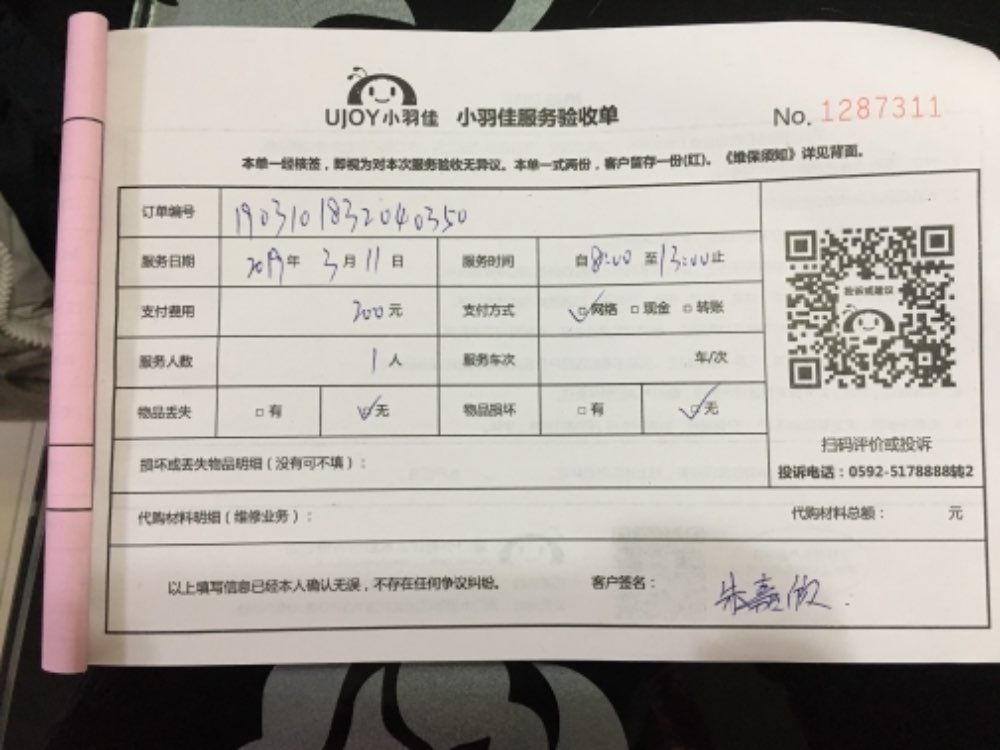 UJOY小羽佳 小羽佳服务验收单 No. 1287311
本单一经核签，即视为对本次服务验收无异议。本单一式两份，客户留存一份(红)。《维保须知》详见背面。
订单编号 1903101832040350
服务日期 2019年 3月 11日 服务时间 自8:00 至13:00止
支付费用 200元 支付方式 ☑网络 □现金 □转账
服务人数 1人 服务车次 车/次
物品丢失 □有 ☑无 物品损坏 □有 ☑无
投诉或建议
扫码评价或投诉
投诉电话：0592-5178888转2
损坏或丢失物品明细（没有可不填）：
代购材料明细（维修业务）： 代购材料总额： 元
以上填写信息已经本人确认无误，不存在任何争议纠纷。 客户签名：